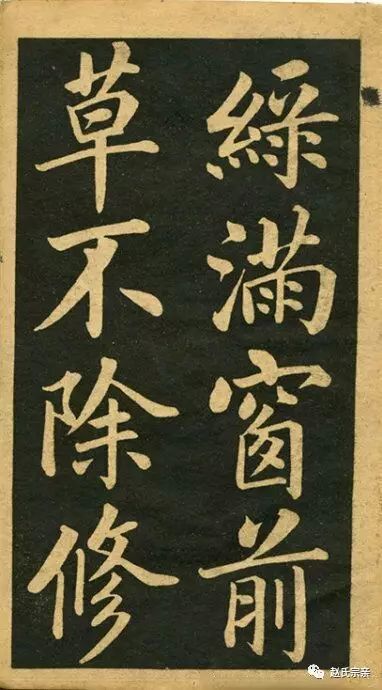 綠滿窗前
草不除修
赵氏宗亲